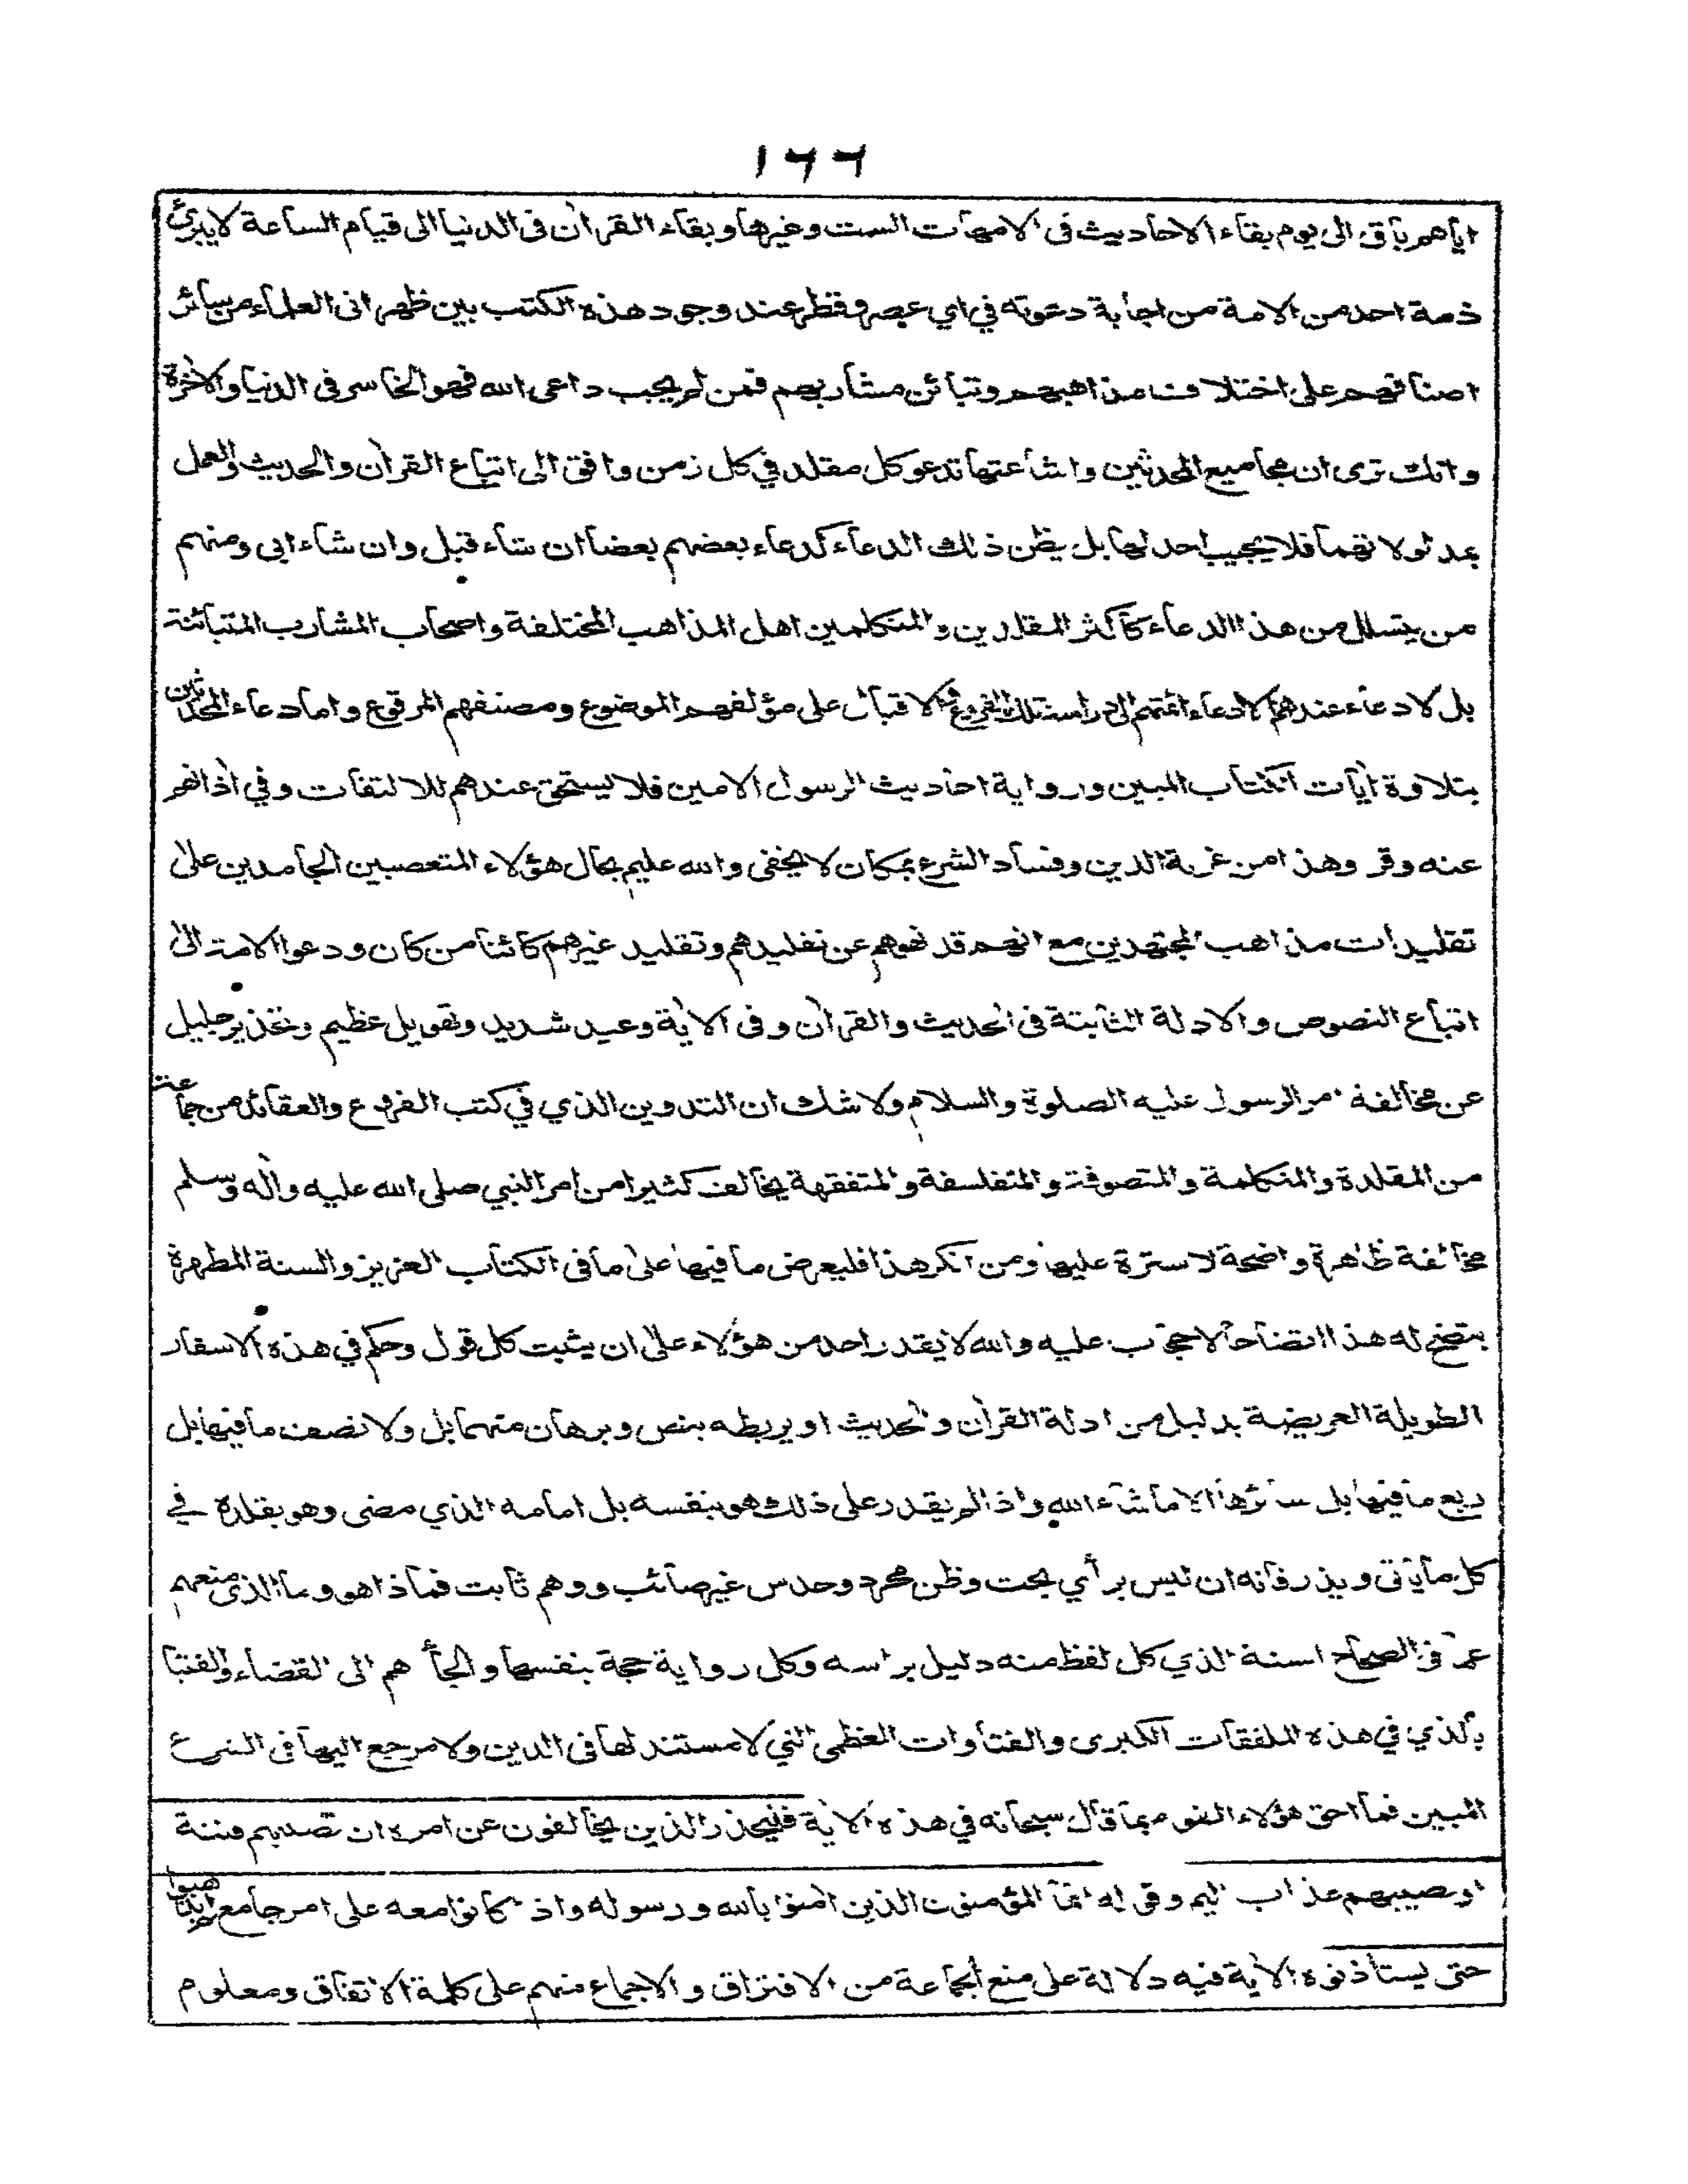 ١٦٦
اياهم باق الى يوم بقاء الاحاديث فى الامهات الست وغيرها وبقاء القرآن فى الدنيا الى قيام الساعة لا يبرئ
ذمة احد من الامة من اجابة دعوته في اي عصر وقطر عند وجود هذه الكتب بين ظهرانى العلماء من سائر
اصنافهم على اختلاف مذاهبهم وتبائن مشاربهم فمن لم يجب داعى الله فهو الخاسر فى الدنيا والآخرة
وانك ترى ان مجاميع المحدثين واشاعتها تدعو كل مقلد في كل زمن وافق الى اتباع القرآن والحديث والعمل
بمدلولاتهما فلا يجيب احد لها بل يظن ذلك الدعاء كدعاء بعضهم بعضا ان شاء قبل وان شاء ابى ومنهم
من يتسلل من هذا الدعاء كاكثر المقلدين والمتكلمين اهل المذاهب المختلفة واصحاب المشارب المتبائنة
بل لا دعاء عندهم الا دعاء ائمتهم الى دراسة تلك الفروع والاقبال على مؤلفهم الموضوع ومصنفهم المرقوع واما دعاء المحدثين
بتلاوة آيات الكتاب المبين ورواية احاديث الرسول الامين فلا يستحق عندهم للالتفات وفي آذانهم
عنه وقر وهذا من غربة الدين وفساد الشرع بمكان لا يخفى والله عليم بحال هؤلاء المتعصبين الجامدين على
تقليدات مذاهب المجتهدين مع انهم قد نهوهم عن تقليدهم وتقليد غيرهم كائنا من كان ودعوا الامة الى
اتباع النصوص والادلة الثابتة فى الحديث والقرآن وفى الآية وعيد شديد وتهويل عظيم وتحذير جليل
عن مخالفة امر الرسول عليه الصلوة والسلام ولا شك ان التدوين الذي في كتب الفروع والعقائد من جماعة
من المقلدة والمتكلمة والمتصوفة والمتفلسفة والمتفقهة يخالف كثيرا من امر النبي صلى الله عليه وآله وسلم
مخالفة ظاهرة واضحة لا سترة عليها ومن انكر هذا فليعرض ما فيها على ما فى الكتاب العزيز والسنة المطهرة
يتضح له هذا اتضاحا لا حجاب عليه والله لا يقدر احد من هؤلاء على ان يثبت كل قول وحكم في هذه الاسفار
الطويلة العريضة بدليل من ادلة القرآن والحديث او يربطه بنص وبرهان منهما بل ولا نصف ما فيها بل
ربع ما فيها بل سائرها الا ما شاء الله واذا لم يقدر على ذلك هو بنفسه بل امامه الذي مضى وهو يقلده في
كل ما ياتى ويذر فانه ان ليس برأي بحت وظن مجرد وحدس غير صائب ووهم ثابت فماذا هو وما الذى منعهم
عما فى الصحاح الستة الذي كل لفظ منه دليل براسه وكل رواية حجة بنفسها والجأهم الى القضاء والفتيا
بالذي في هذه الملفقات الكبرى والفتاوات العظمى التي لا مستند لها فى الدين ولا مرجع اليها فى الشرع
المبين فما احق هؤلاء القوم بما قال سبحانه في هذه الآية فليحذر الذين يخالفون عن امره ان تصيبهم فتنة
او يصيبهم عذاب اليم وقوله انما المؤمنون الذين آمنوا بالله ورسوله واذا كانوا معه على امر جامع لم يذهبوا
حتى يستأذنوه الآية فيه دلالة على منع الجماعة من الافتراق والاجماع منهم على كلمة الاتفاق ومعلوم